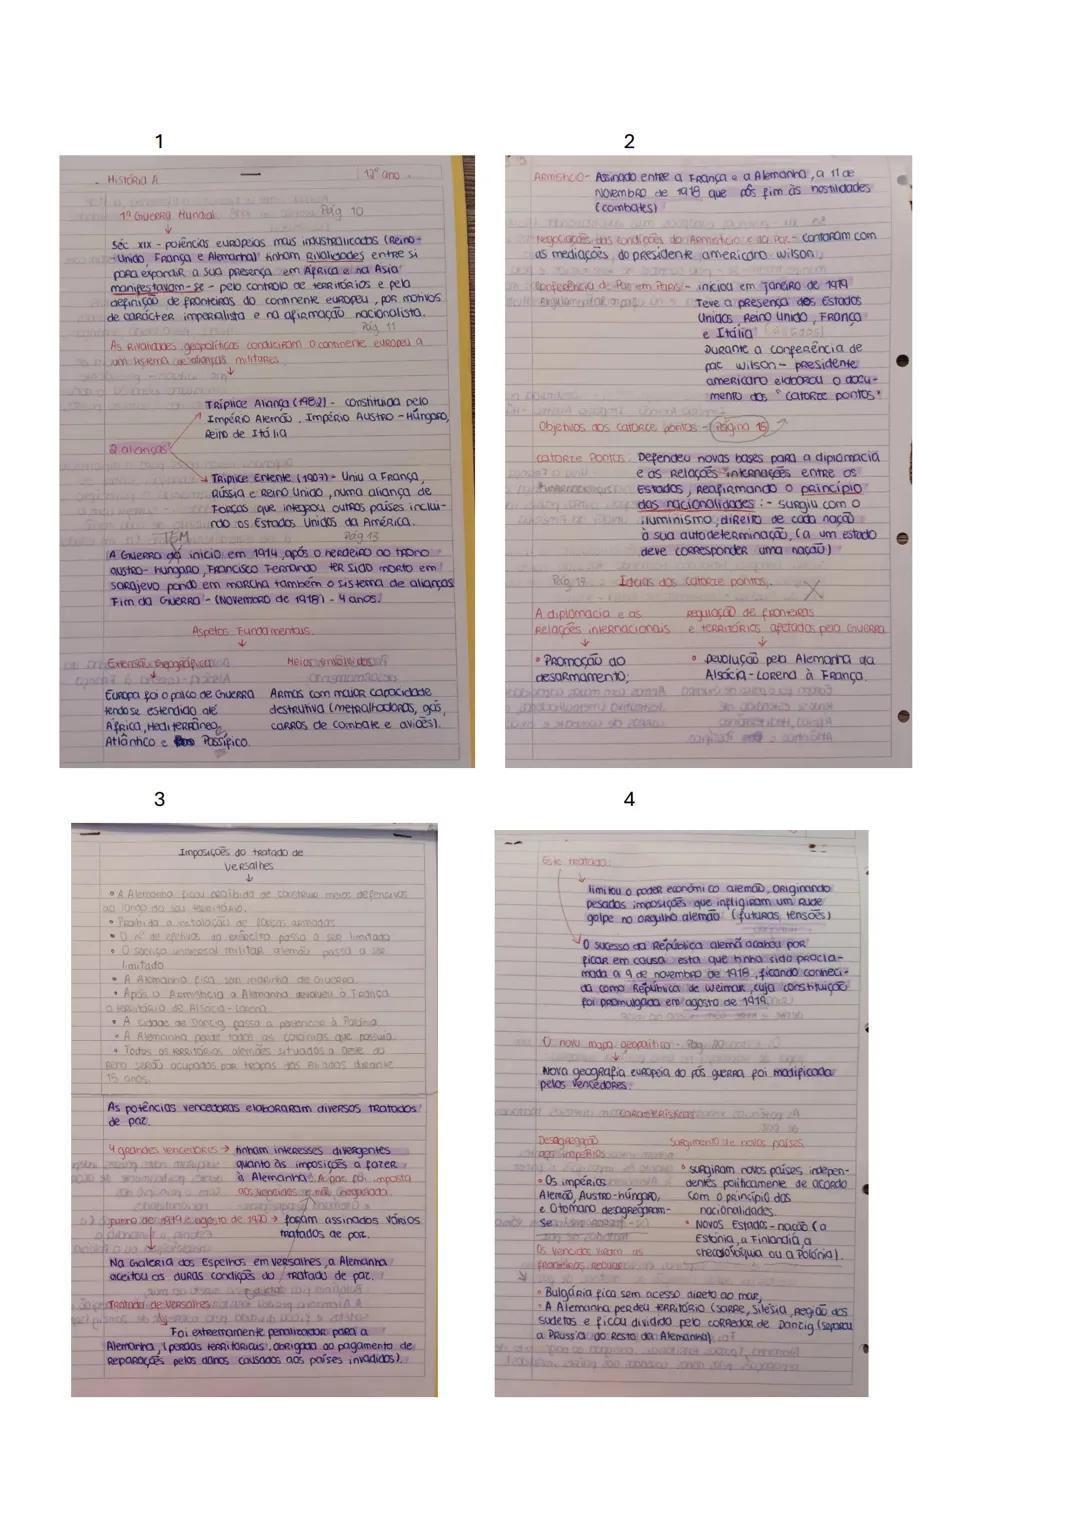 1
História A
12º ano
1ª Guerra Mundial Pág 10
Séc XIX - potências europeias mais industrializadas (Reino
Unido, França e Alemanha) tinham rivalidades entre si
para expandir a sua presença em África e na Ásia
manifestavam-se - pelo controlo de territórios e pela
definição de fronteiras do continente europeu, por motivos
de carácter imperialista e na afirmação nacionalista.
Pág 11
As Rivalidades geopolíticas conduziram o continente europeu a
um sistema de alianças militares.
Tríplice Aliança (1982) - constituída pelo
Império Alemão, Império Austro-Húngaro,
Reino de Itália
2 alianças
Tríplice Entente (1907) - Uniu a França,
Rússia e Reino Unido, numa aliança de
Forças que integrou outros países inclui-
ndo os Estados Unidos da América.
TEM
Pág 13
A Guerra dá inicio em 1914, após o herdeiro ao trono
austro-húngaro, Francisco Fernando ter sido morto em
Sarajevo pondo em marcha também o sistema de alianças
Fim da Guerra - (Novembro de 1918) - 4 anos.
Aspetos Fundamentais
Extensão Geográfica
Meios envolvidos
Europa foi o palco de Guerra
tendo se estendido até
África, Mediterrâneo,
Atlântico e Passífico.
Armas com maior capacidade
destrutiva (metralhadoras, gás,
carros de combate e aviões).
2
Armistício - Assinado entre a França e a Alemanha, a 11 de
Novembro de 1918 que pôs fim às hostilidades
(combates)
negociações das condições do Armistício e da Paz - Contaram com
as mediações do presidente americano Wilson
Conferência de Paz em Paris - iniciou em janeiro de 1919
Teve a presença dos Estados
Unidos, Reino Unido, França
e Itália
Durante a conferência de
paz Wilson - presidente
americano elaborou o docu-
mento dos "catorze pontos"
Objetivos dos catorze pontos - (Página 15)
Catorze Pontos Defendeu novas bases para a diplomacia
e as relações internações entre os
Estados, reafirmando o princípio
das nacionalidades :- surgiu com o
iluminismo, direito de cada nação
à sua autodeterminação, (a um estado
deve corresponder uma nação)
Ideias dos catorze pontos
A diplomacia e as
Relações internacionais
regulação de fronteiras
e territórios afetados pela Guerra
• Promoção do
desarmamento;
• Devolução pela Alemanha da
Alsácia-Lorena à França.
3
Imposições do tratado de
Versalhes
• A Alemanha ficou proibida de construir meios defensivos
ao longo do seu território.
• Proibida a instalação de forças armadas
• O nº de efetivos do exército passa a ser limitado
• O serviço universal militar alemão passa a ser
limitado
• A Alemanha fica sem marinha de Guerra.
• Após o Armistício a Alemanha devolveu à França
o território de Alsácia-Lorena
• A cidade de Danzig passa a pertencer à Polónia
• A Alemanha perde todas as colónias que possuía
• Todos os territórios alemães situados a Oeste do
Reno serão ocupados por tropas dos Aliados durante
15 anos.
As potências vencedoras elaboraram diversos tratados
de paz.
4 grandes vencedores → tinham interesses divergentes
quanto às imposições a fazer
à Alemanha. A paz foi imposta
aos vencidos e não negociada.
junho de 1919 e agosto de 1920 → foram assinados vários
tratados de paz.
Na Galeria dos Espelhos em Versalhes, a Alemanha
aceitou as duras condições do tratado de paz.
Tratado de Versalhes
Foi extremamente penalizador para a
Alemanha, (perdas territoriais, obrigada ao pagamento de
Reparações pelos danos causados aos países invadidos).
4
Este tratado:
limitou o poder económico alemão, originando
pesadas imposições que infligiram um rude
golpe no orgulho alemão (futuras tensões)
O sucesso da República alemã acabou por
ficar em causa esta que tinha sido procla-
mada a 9 de novembro de 1918, ficando conheci-
da como República de Weimar, cuja constituição
foi promulgada em agosto de 1919.
O novo mapa geopolítico - Pág. 20
Nova geografia europeia do pós guerra foi modificada
pelos vencedores.
características
Desagregação
dos impérios
Surgimento de novos países
• Os impérios
Alemão, Austro-húngaro,
e Otomano desagregaram-
se
• surgiram novos países indepen-
dentes politicamente de acordo
com o princípio das
nacionalidades.
• Novos Estados-nação (a
Estónia, a Finlândia, a
checoslováquia ou a Polónia).
Os vencidos viram as
fronteiras recuar
• Bulgária fica sem acesso direto ao mar,
• A Alemanha perdeu território (Sarre, Silésia, Região dos
sudetas e ficou dividida pelo corredor de Danzig (separou
a Prússia do resto da Alemanha).